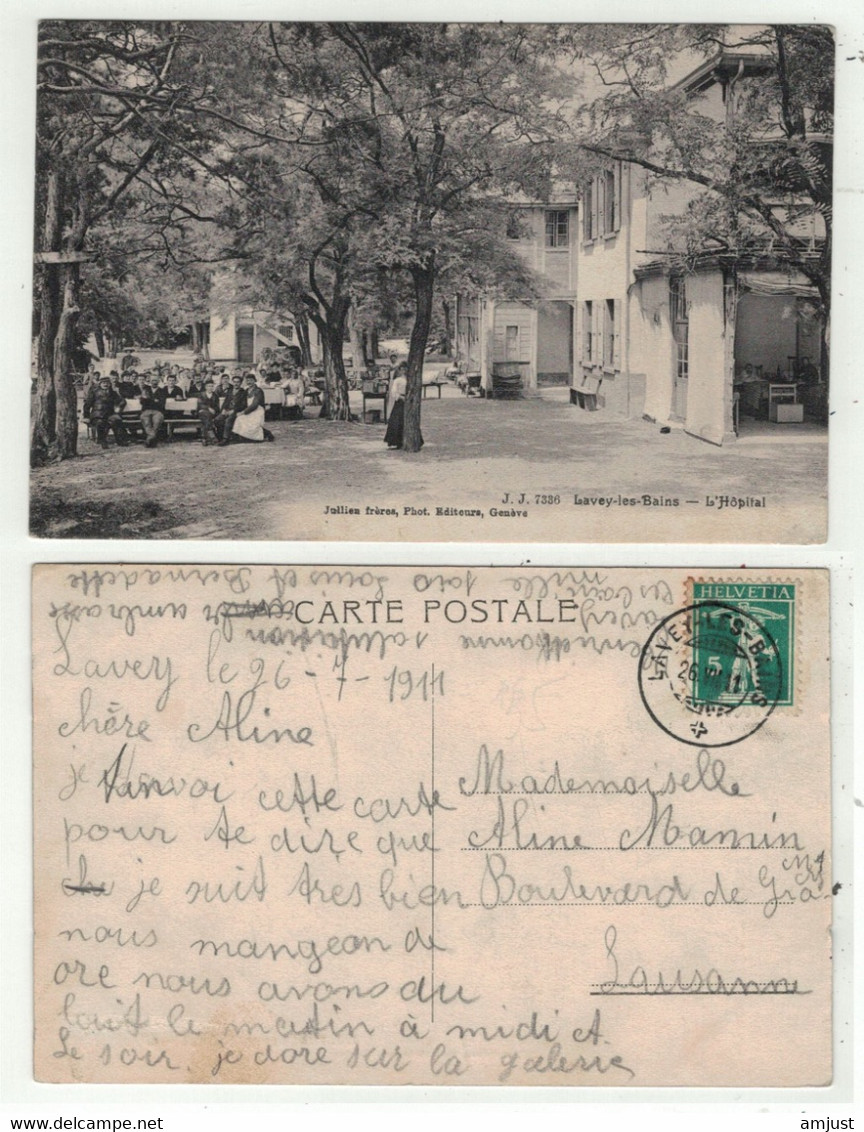 J. J. 7336 Lavey-les-Bains — L'Hôpital
Jullien frères, Phot. Editeurs, Genève
CARTE POSTALE
HELVETIA
5
LAVEY-LES-BAINS
26.VII.11
Lavey le 26-7-1911
chère Aline
je t'anvoi cette carte
pour te dire que
je suit très bien
nous mangeon de
ore nous avons du
lait le matin à midi et
Le soir je dore sur la galerie
Mademoiselle
Aline Mamin
Boulevard de Gra-
Lausanne
salutation
umbrasse
mille fois Louis et Bernadette
amjust